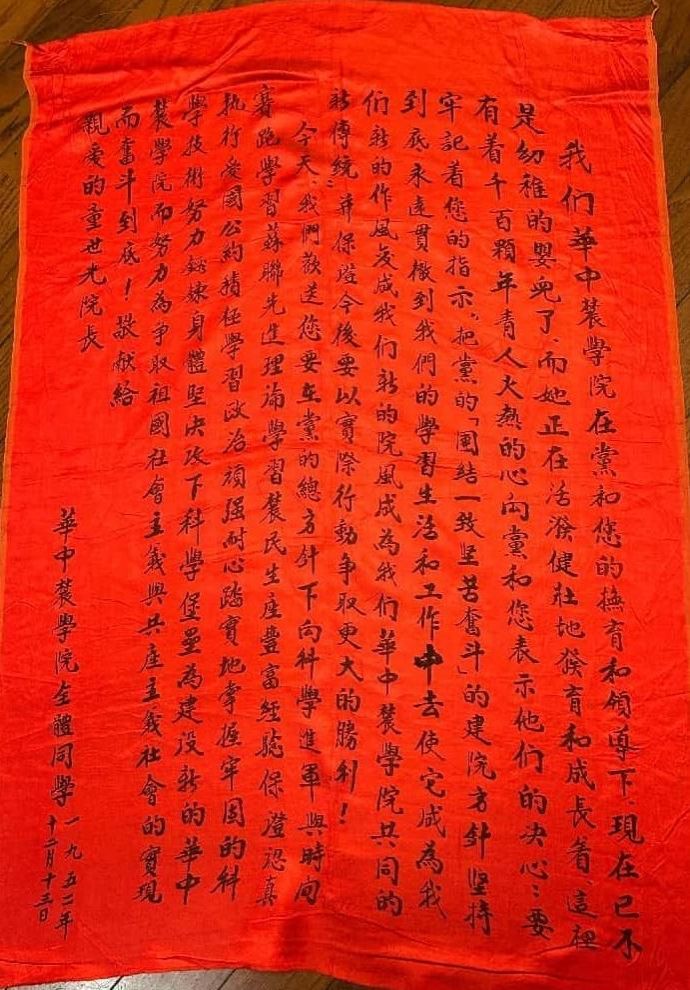 我们華中農學院在黨和您的撫育和領導下、現在已不
是幼稚的嬰兒了、而她正在活潑健壯地發育和成長着、這裡
有着千百顆年青人火熱的心向黨和您表示他们的决心：要
牢記着您的指示、把黨的「團结一致堅苦奮斗」的建院方針堅持
到底永遠貫徹到我們的學習生活和工作中去使它成為我
们新的作風变成我们新的院風成為我们華中農學院共同的
新傳統、并保證今後要以實際行動争取更大的勝利！
今天、我們歡送您要在黨的總方針下向科學進軍與時间
賽跑學習蘇聯先進理論學習農民生產豐富經驗保證認真
執行愛國公約積極學習政治頑强耐心踏實地掌握牢固的科
學技術努力鍛鍊身體堅决攻下科學堡壘為建設新的華中
農學院而努力為争取祖國社會主義與共產主義社會的實現
而奮斗到底！敬献給
親爱的童世光院長
華中農學院全體同學
一九五二年
十二月十三日